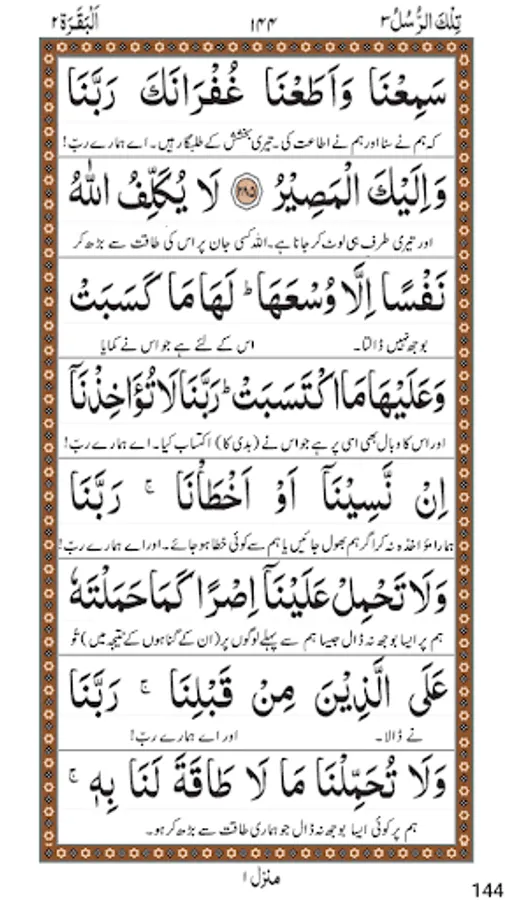 تِلْكَ الرُّسُلُ ۳ ۱۴۴ اَلْبَقَرَة ۲
سَمِعْنَا وَاَطَعْنَا غُفْرَانَكَ رَبَّنَا
کہ ہم نے سنا اور ہم نے اطاعت کی۔ تیری بخشش کے طلبگار ہیں۔ اے ہمارے ربّ!
وَاِلَيْكَ الْمَصِيْرُ ۲۸۵ لَا يُكَلِّفُ اللّٰهُ
اور تیری طرف ہی لوٹ کر جانا ہے۔ اللہ کسی جان پر اس کی طاقت سے بڑھ کر
نَفْسًا اِلَّا وُسْعَهَا ؕ لَهَا مَا كَسَبَتْ
بوجھ نہیں ڈالتا۔ اس کے لئے ہے جو اس نے کمایا
وَعَلَيْهَا مَا اكْتَسَبَتْ ؕ رَبَّنَا لَا تُؤَاخِذْنَاۤ
اور اس کا وبال بھی اسی پر ہے جو اس نے (بدی کا) اکتساب کیا۔ اے ہمارے ربّ!
اِنْ نَّسِيْنَاۤ اَوْ اَخْطَاْنَا ۚ رَبَّنَا
ہمارا مؤاخذہ نہ کر اگر ہم بھول جائیں یا ہم سے کوئی خطا ہو جائے۔ اور اے ہمارے ربّ!
وَلَا تَحْمِلْ عَلَيْنَاۤ اِصْرًا كَمَا حَمَلْتَهٗ
ہم پر ایسا بوجھ نہ ڈال جیسا ہم سے پہلے لوگوں پر (ان کے گناہوں کے نتیجہ میں) تُو
عَلَى الَّذِيْنَ مِنْ قَبْلِنَا ۚ رَبَّنَا
نے ڈالا۔ اور اے ہمارے ربّ!
وَلَا تُحَمِّلْنَا مَا لَا طَاقَةَ لَنَا بِهٖ ۚ
ہم پر کوئی ایسا بوجھ نہ ڈال جو ہماری طاقت سے بڑھ کر ہو۔
منزل ۱
144